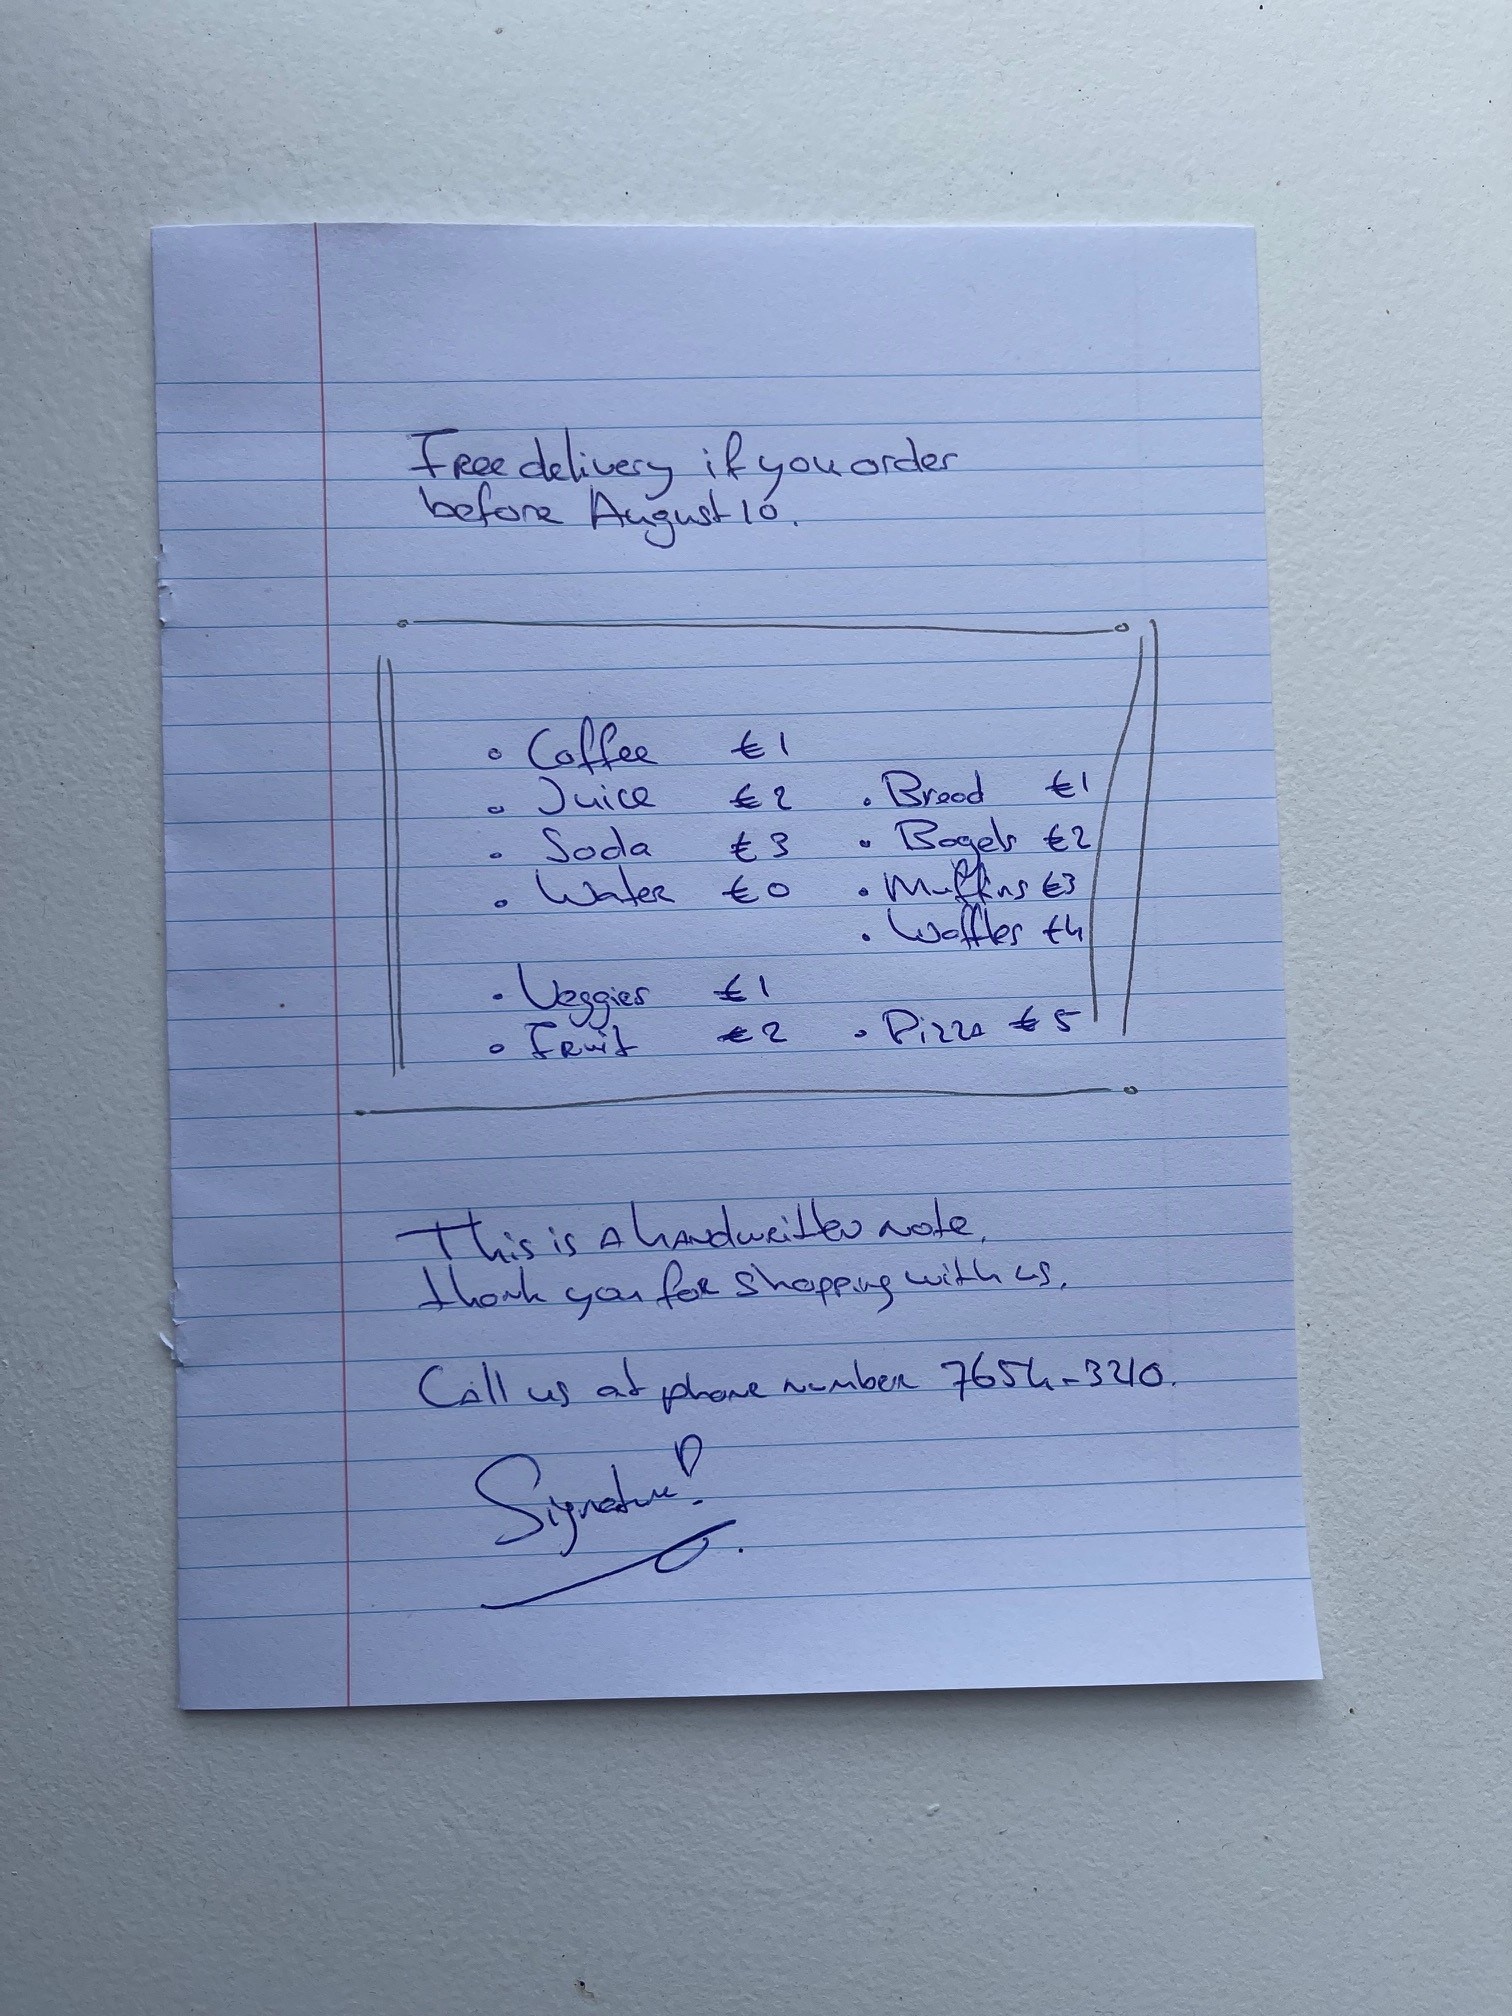 Free delivery if you order
before August 10.
• Coffee €1
• Juice €2
• Soda €3
• Water €0
• Bread €1
• Bagels €2
• Muffins €3
• Waffles €4
• Veggies €1
• Fruit €2
• Pizza €5
This is a handwritten note.
thank you for shopping with us.
Call us at phone number 7654-3210.
Signature!